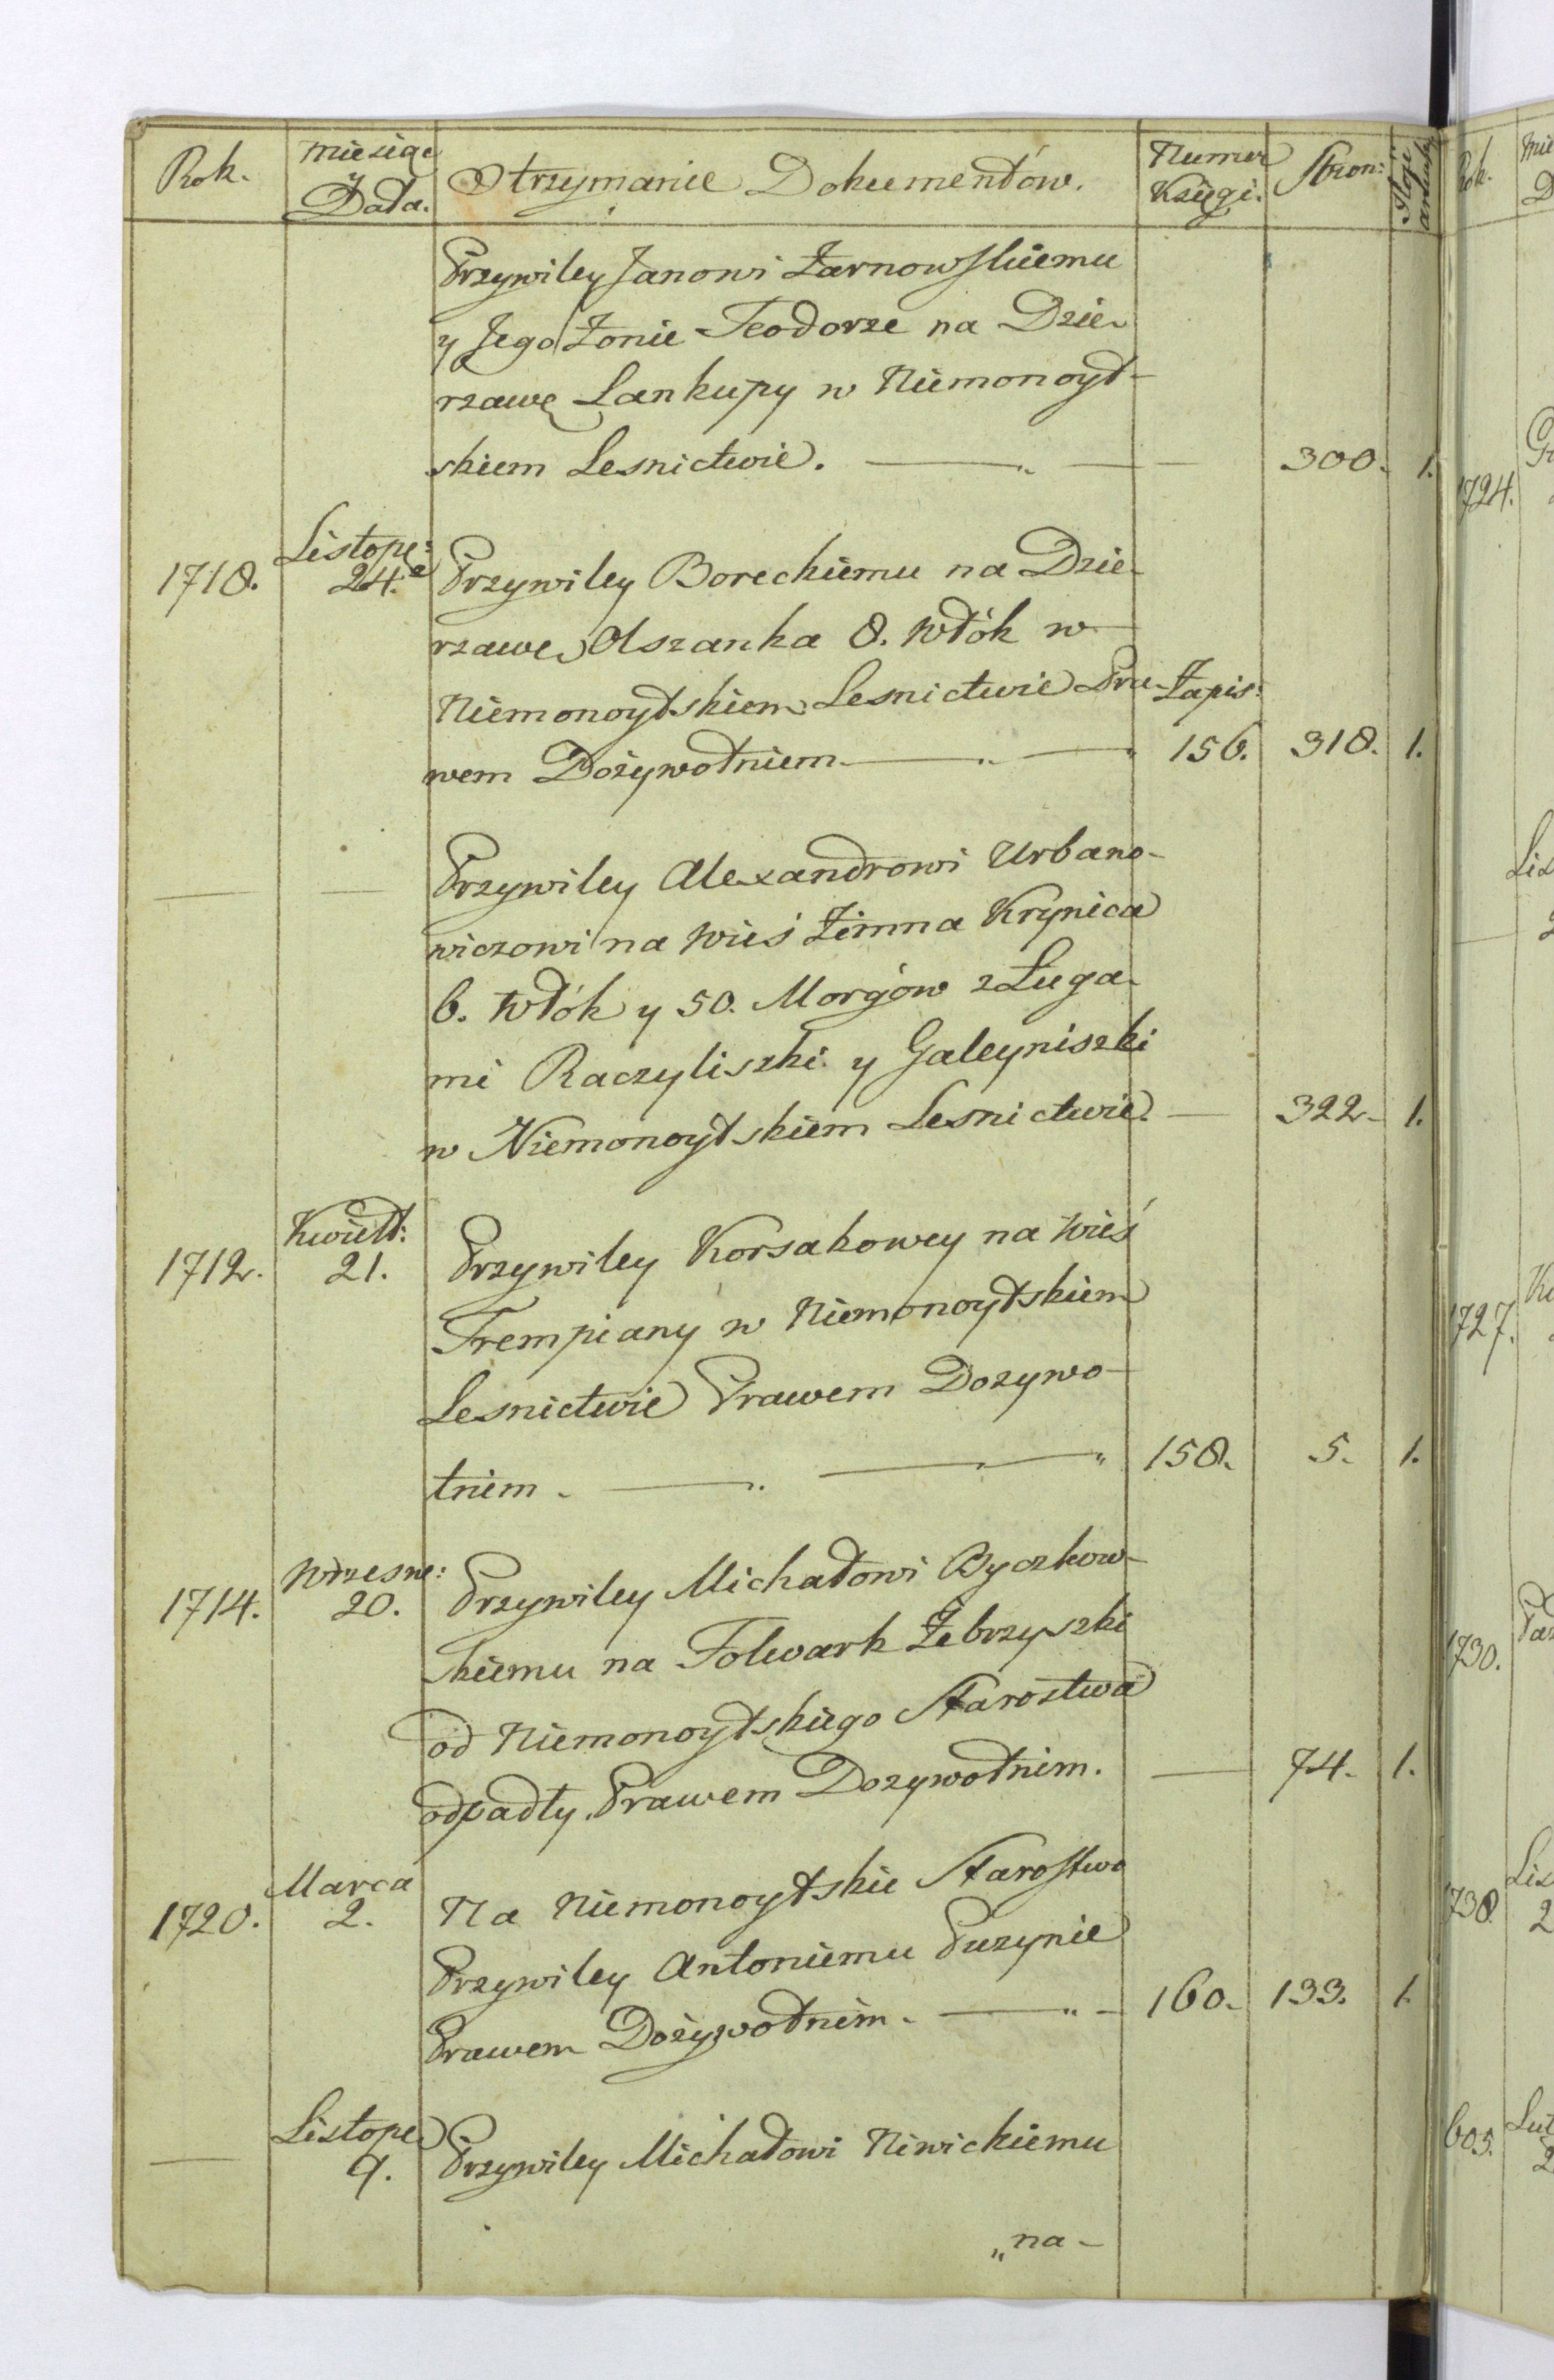 Rok. Miesiąc y Data. Otrzymanie Dokumentów. Numer Księgi. Stron:
Przywiley Janowi Żarnowskiemu
y Jego Żonie Teodorze na Dzie-
rzawę Lankupy w Niemonoyt-
skiem Lesnictwie. 300. 1.
1718. Listopa: 24. Przywiley Boreckiemu na Dzie-
rzawę Olszanka 8. Włók w
Niemonoytskiem Lesnictwie Pra- Zapis:
wem Dożywotniem 156. 318. 1.
— — Przywiley Alexandrowi Urbano-
wiczowi na Wieś Zimna Krynica
6. Włók y 50. Morgów z Ługa-
mi Raczyliszki y Galeyniszki
w Niemonoytskiem Lesnictwie. — 322. 1.
1712. Kwiett: 21. Przywiley Korsakowey na Wieś
Trempiany w Niemonoytskiem
Lesnictwie Prawem Dozywo-
tniem. 158. 5. 1.
1714. Wrzesnia: 20. Przywiley Michałowi Byczkow-
skiemu na Folwark Żebrzyszki
od Niemonoytskiego Starostwa
odpadły. Prawem Dozywotnim. — 74. 1.
1720. Marca 2. Na Niemonoytskie Starostwo
Przywiley Antoniemu Puzynie
Prawem Dożywotnim. 160. 133. 1.
— Listopa 9. Przywiley Michałowi Niwickiemu
„na-
Rok.
1724.
1727.
1730.
1738